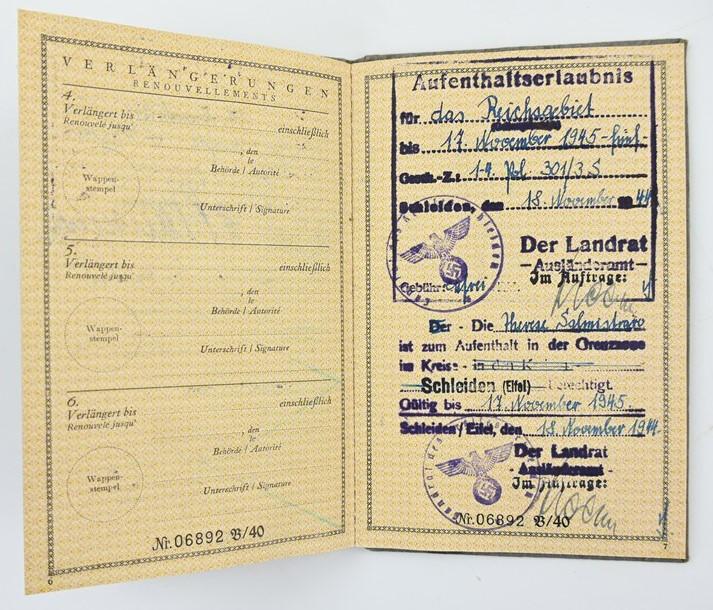 VERLÄNGERUNGEN
RENOUVELLEMENTS
4.
Verlängert bis
Renouvelé jusqu'
einschließlich
, den
le
Behörde / Autorité
Wappen-
stempel
Unterschrift / Signature
5.
Verlängert bis
Renouvelé jusqu'
einschließlich
, den
le
Behörde / Autorité
Wappen-
stempel
Unterschrift / Signature
6.
Verlängert bis
Renouvelé jusqu'
einschließlich
, den
le
Behörde / Autorité
Wappen-
stempel
Unterschrift / Signature
Nr. 06892 B/40
6
Aufenthaltserlaubnis
für das Reichsgebiet
bis 17. November 1945 - fünf-
Gesch.-Z.: 1-9 Pol 301/3 S
Schleiden, den 18. November 44
Der Landrat
-Ausländeramt-
Im Auftrage:
Gebühr: frei
Der - Die Therese
ist zum Aufenthalt in der Grenzzone
im Kreise
Schleiden (Eifel) berechtigt.
Gültig bis 17. November 1945.
Schleiden / Eifel, den 18. November 1944.
Der Landrat
-Ausländeramt-
Im Auftrage:
Nr. 06892 B/40
7